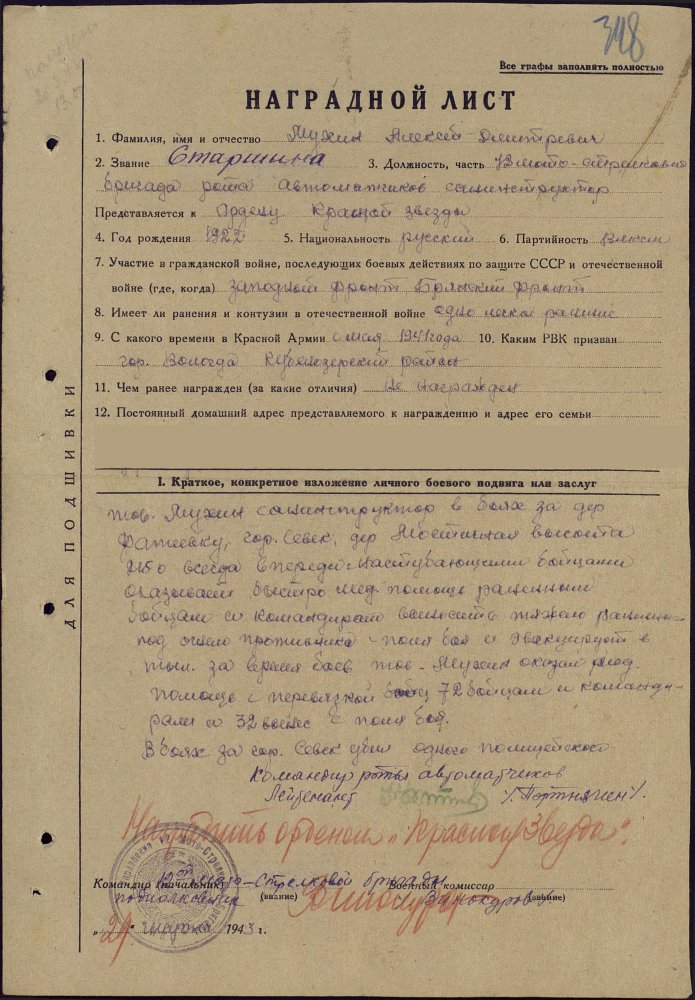 348
Все графы заполнять полностью
НАГРАДНОЙ ЛИСТ
1. Фамилия, имя и отчество Мухин Алексей Дмитревич
2. Звание Старшина 3. Должность, часть 12 мото-стрелковая
бригада рота автоматчиков санинструктор
Представляется к Ордену Красной звезды
4. Год рождения 1922 5. Национальность русский 6. Партийность
7. Участие в гражданской войне, последующих боевых действиях по защите СССР и отечественной
войне (где, когда) западной фронт Брянский фронт
8. Имеет ли ранения и контузии в отечественной войне одно легкое ранение
9. С какого времени в Красной Армии с мая 1941 года 10. Каким РВК призван
гор. Вологда район
11. Чем ранее награжден (за какие отличия) Не награжден
12. Постоянный домашний адрес представляемого к награждению и адрес его семьи
ДЛЯ ПОДШИВКИ
I. Краткое, конкретное изложение личного боевого подвига или заслуг
тов. Мухин санинструктор в боях за дер
гор. Севск, дер высота
всегда впереди наступающими бойцами
оказывает быстро мед. помощь раненным
бойцам и командирам выносить тяжело раненных
под огнем противника с поля боя и эвакуирует в
тыл. за время боев тов. Мухин оказал мед.
помощь с перевязкой 72 бойцам и команди-
рам и 32 вынес с поля боя.
В боях за гор. Севск убил одного полицейского
Командир роты автоматчиков
Лейтенант
Наградить орденом „Красной Звезды".
Командир (начальник) 12 ой мото-Стрелковой бригады Военный комиссар
подполковник (звание) Винокуров (звание)
„21" марта 1943 г.